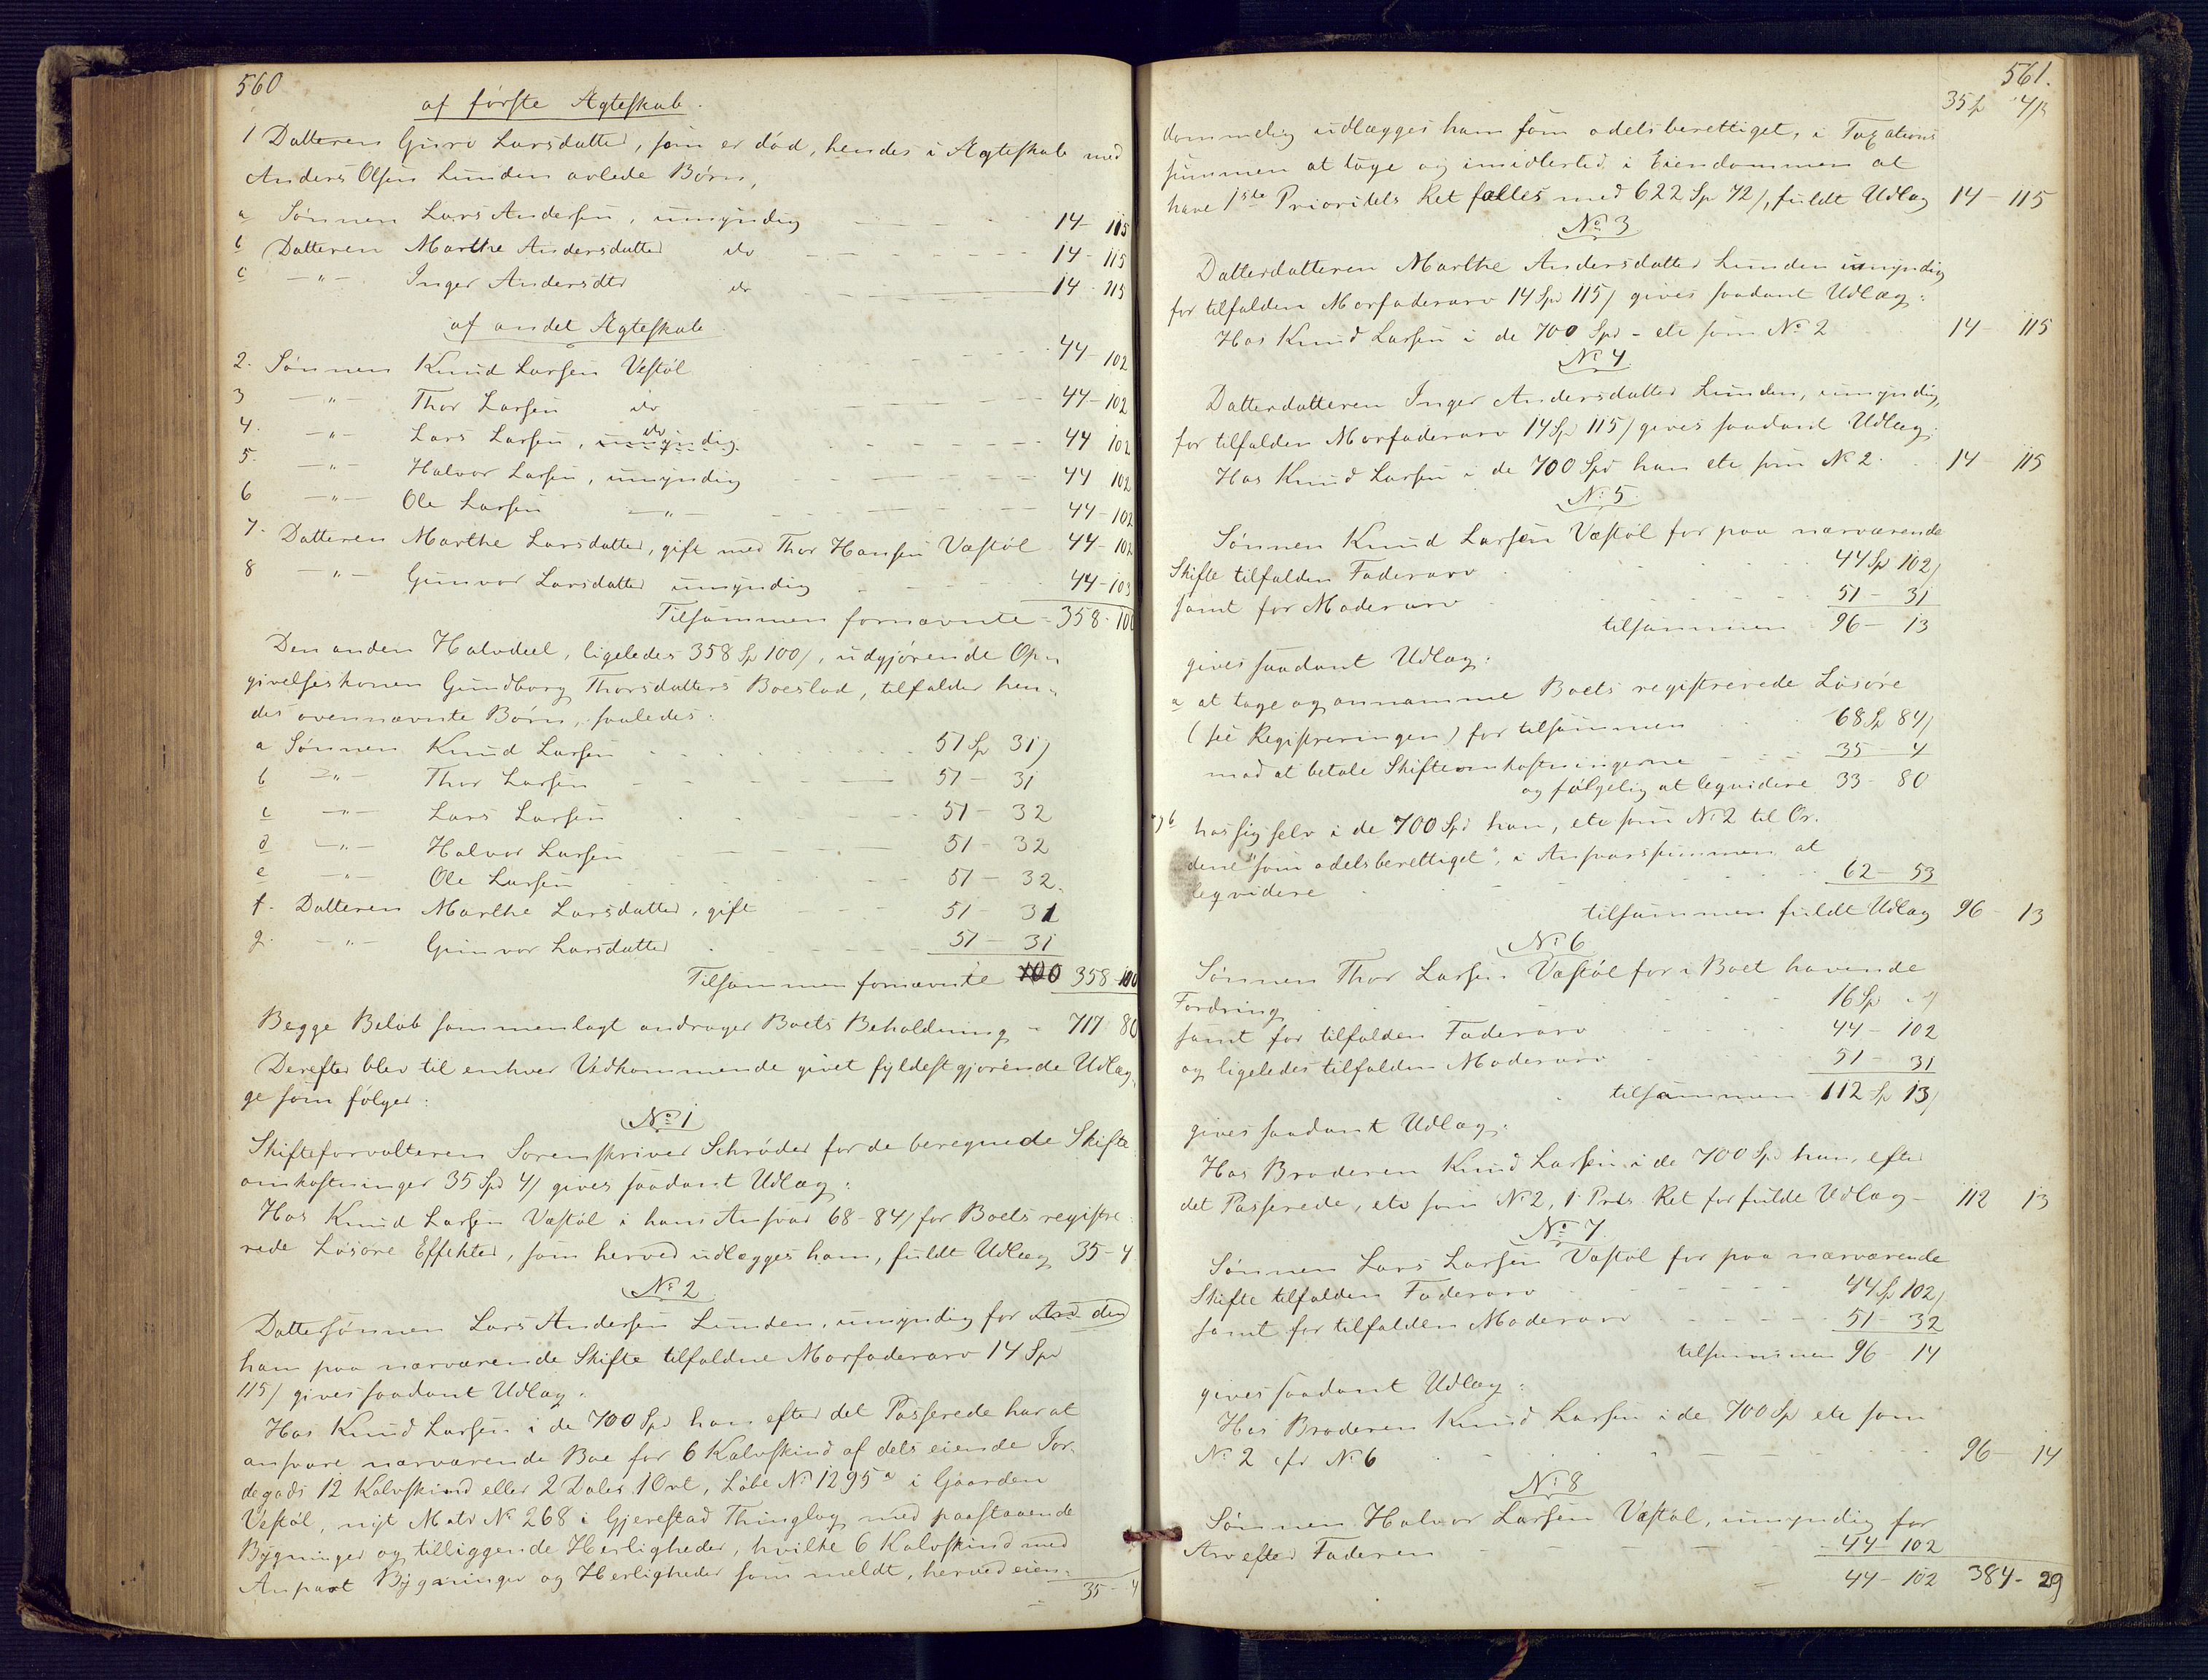 560
af første Ægteskab.
1 Datteren Guro Larsdatter, som er død, hendes i Ægteskab med
Anders Olsen Lunden avlede Børn,
a Sønnen Lars Andersen, umyndig 14 - 115
b Datteren Marthe Andersdatter do 14 - 115
c —"— Inger Andersdtr do 14 - 115
af andet Ægteskab
2. Sønnen Knud Larsen Vestøl 44 - 102
3 —"— Thor Larsen do 44 - 102
4. —"— Lars Larsen, do umyndig 44 102
5. —"— Halvor Larsen, umyndig 44 102
6 —"— Ole Larsen —"— 44 - 102
7. Datteren Marthe Larsdatter, gift med Thor Hansen Væstøl 44 - 102
8 —"— Gunvor Larsdatter umyndig 44 - 103
Tilsammen fornævnte 358 - 100
Den anden Halvdeel, ligeledes 358 Sp 100/, udgjørende Op-
givelseskonen Gundborg Thorsdatters Boeslod, tilfalder hen-
des ovennævnte Børn, saaledes:
a Sønnen Knud Larsen 51 Sp 31/
b —"— Thor Larsen 51 - 31
c —"— Lars Larsen 51 - 32
d —"— Halvor Larsen 51 - 32
e —"— Ole Larsen 51 - 32.
f. Datteren Marthe Larsdatter, gift 51 - 31
g. —"— Gunvor Larsdatter 51 - 31
Tilsammen fornævnte 100 358 - 100
Begge Beløb sammenlagt andrager Boets Beholdning - 717 80
Derefter blev til enhver Vedkommende givet fyldestgjørende Udlæg-
ge som følger:
No 1
Skifteforvalteren Sorenskriver Schrøder for de beregnede Skifte-
omkostninger 35 Spd 4/ gives saadant Udlæg:
Hos Knud Larsen Væstøl i hans Ansvar 68 - 84/ for Boets registre-
rede Løsøre Effekter, som herved udlægges ham, fuldt Udlæg 35 - 4
No 2
Dattersønnen Lars Andersen Lunden, umyndig for Arv den
ham paa nærværende Skifte tilfaldne Morfaderarv 14 Spd
115/ gives saadant Udlæg:
Hos Knud Larsen i de 700 Spd han efter det Passerede har at
ansvare nærværende Boe for 6 Kalvskind af dets eiende Jor-
degods 12 Kalvskind eller 2 Daler 1 Ort, Løbe No 1295a i Gaarden
Vestøl, nyt Matr No 268 i Gjerestad Thinglag med paastaaende
Bygninger og tilliggende Herligheder, hvilke 6 Kalvskind med
Anpart Bygninger og Herligheder som meldt, herved eien-
35 - 4
561.
35 Sp 4 ß
dommelig udlægges ham som odelsberettiget, i Taxations
summen at tage og imidlertid i Eiendommen at
have 1ste Prioritets Ret fælles med 622 Sp 72/, fuldt Udlæg 14 - 115
No 3
Datterdatteren Marthe Andersdatter Lunden umyndig
for tilfalden Morfaderarv 14 Spd 115/ gives saadant Udlæg:
Hos Knud Larsen i de 700 Spd - etc som No 2 14 115
No 4
Datterdatteren Inger Andersdatter Lunden, umyndig,
for tilfalden Morfaderarv 14 Sp 115/ gives saadant Udlæg:
Hos Knud Larsen i de 700 Spd han etc som No 2. 14 115
No 5.
Sønnen Knud Larsen Væstøl for paa nærværende
Skifte tilfalden Faderarv 44 Sp 102/
samt for Moderarv 51 - 31
tilsammen 96 - 13
gives saadant Udlæg:
a at tage og annamme Boets registrerede Løsøre
(see Registreringen) for tilsammen 68 Sp 84/
mod at betale Skifteomkostningerne 35 - 4
og følgelig at leqvidere 33 - 80
og b hos sig selv i de 700 Spd han, etc som No 2 til Or-
dene "som odelsberettiget", i Ansvarssummen at
leqvidere 62 - 53
tilsammen fuldt Udlæg 96 - 13
No 6
Sønnen Thor Larsen Væstøl for i Boet havende
Fordring 16 Sp "/
samt for tilfalden Faderarv 44 - 102
og ligeledes tilfalden Moderarv 51 - 31
tilsammen 112 Sp 13/
gives saadant Udlæg:
Hos Broderen Knud Larsen i de 700 Spd han, efter
det Passerede, etc som No 2, 1 Prts Ret for fulde Udlæg - 112 13
No 7.
Sønnen Lars Larsen Væstøl for paa nærværende
Skifte tilfalden Faderarv 44 Sp 102/
samt for tilfalden Moderarv 51 - 32
tilsammen 96 - 14
gives saadant Udlæg:
Hos Broderen Knud Larsen i de 700 Sp etc som
No 2 cfr No 6 96 - 14
No 8
Sønnen Halvor Larsen Væstøl, umyndig for
Arv efter Faderen 44 - 102
44 - 102 384 - 29